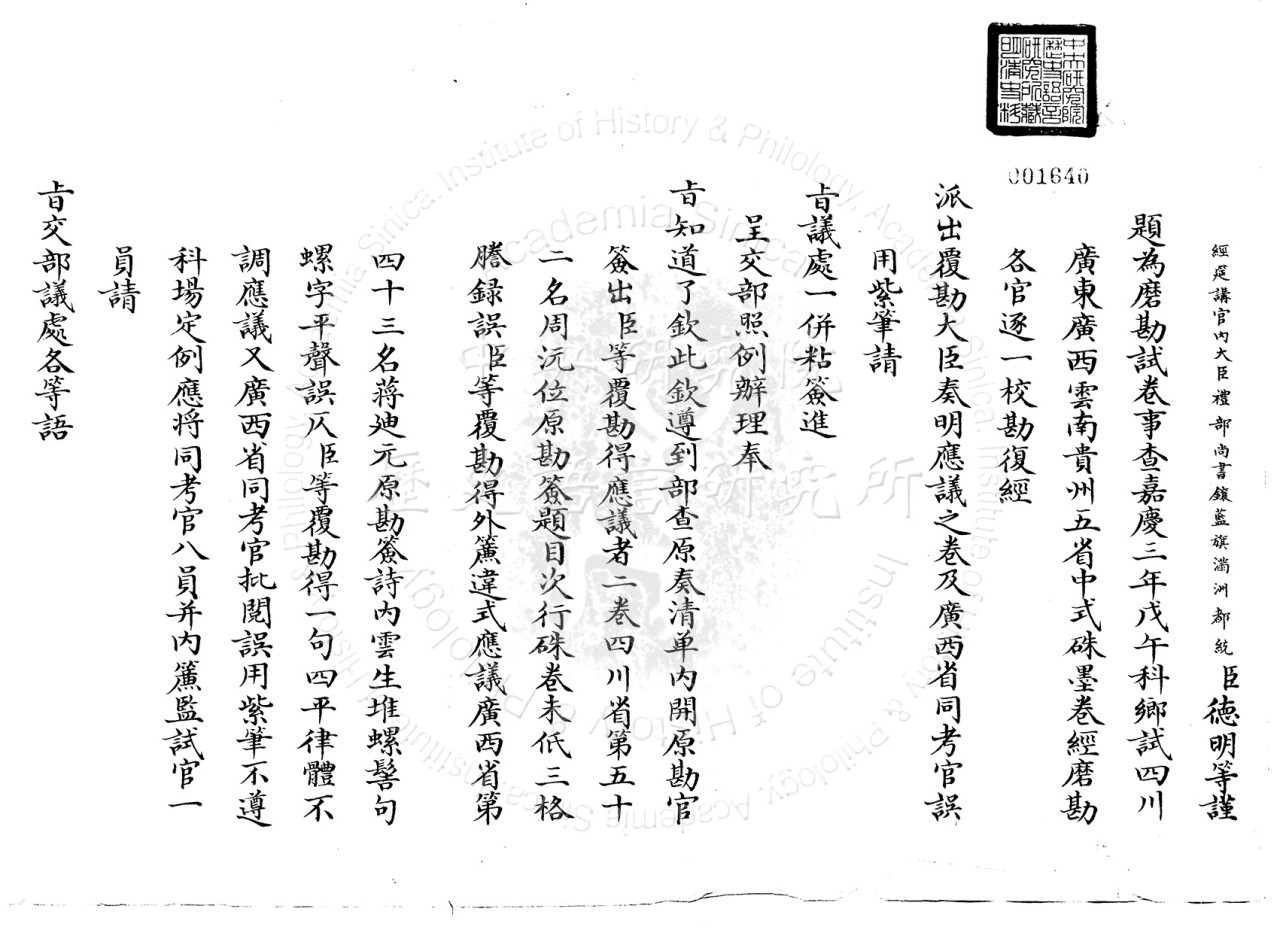 中央研究院
歷史語言
研究所藏
明清史料
001640
經筵講官內大臣禮部尚書鑲藍旗滿洲都統臣德明等謹
題為磨勘試卷事查嘉慶三年戊午科鄉試四川
廣東廣西雲南貴州五省中式硃墨卷經磨勘
各官逐一校勘復經
派出覆勘大臣奏明應議之卷及廣西省同考官誤
用紫筆請
旨議處一併粘簽進
呈交部照例辦理奉
旨知道了欽此欽遵到部查原奏清单内開原勘官
簽出臣等覆勘得應議者二卷四川省第五十
二名周沅位原勘簽題目次行硃卷未低三格
謄録誤臣等覆勘得外簾違式應議廣西省第
四十三名蔣廸元原勘簽詩内雲生堆螺髻句
螺字平聲誤仄臣等覆勘得一句四平律體不
調應議又廣西省同考官批閱誤用紫筆不遵
科場定例應将同考官八員并内簾監試官一
員請
旨交部議處各等語
Institute of History & Philology, Academia Sinica
中央研究院
歷史語言研究所